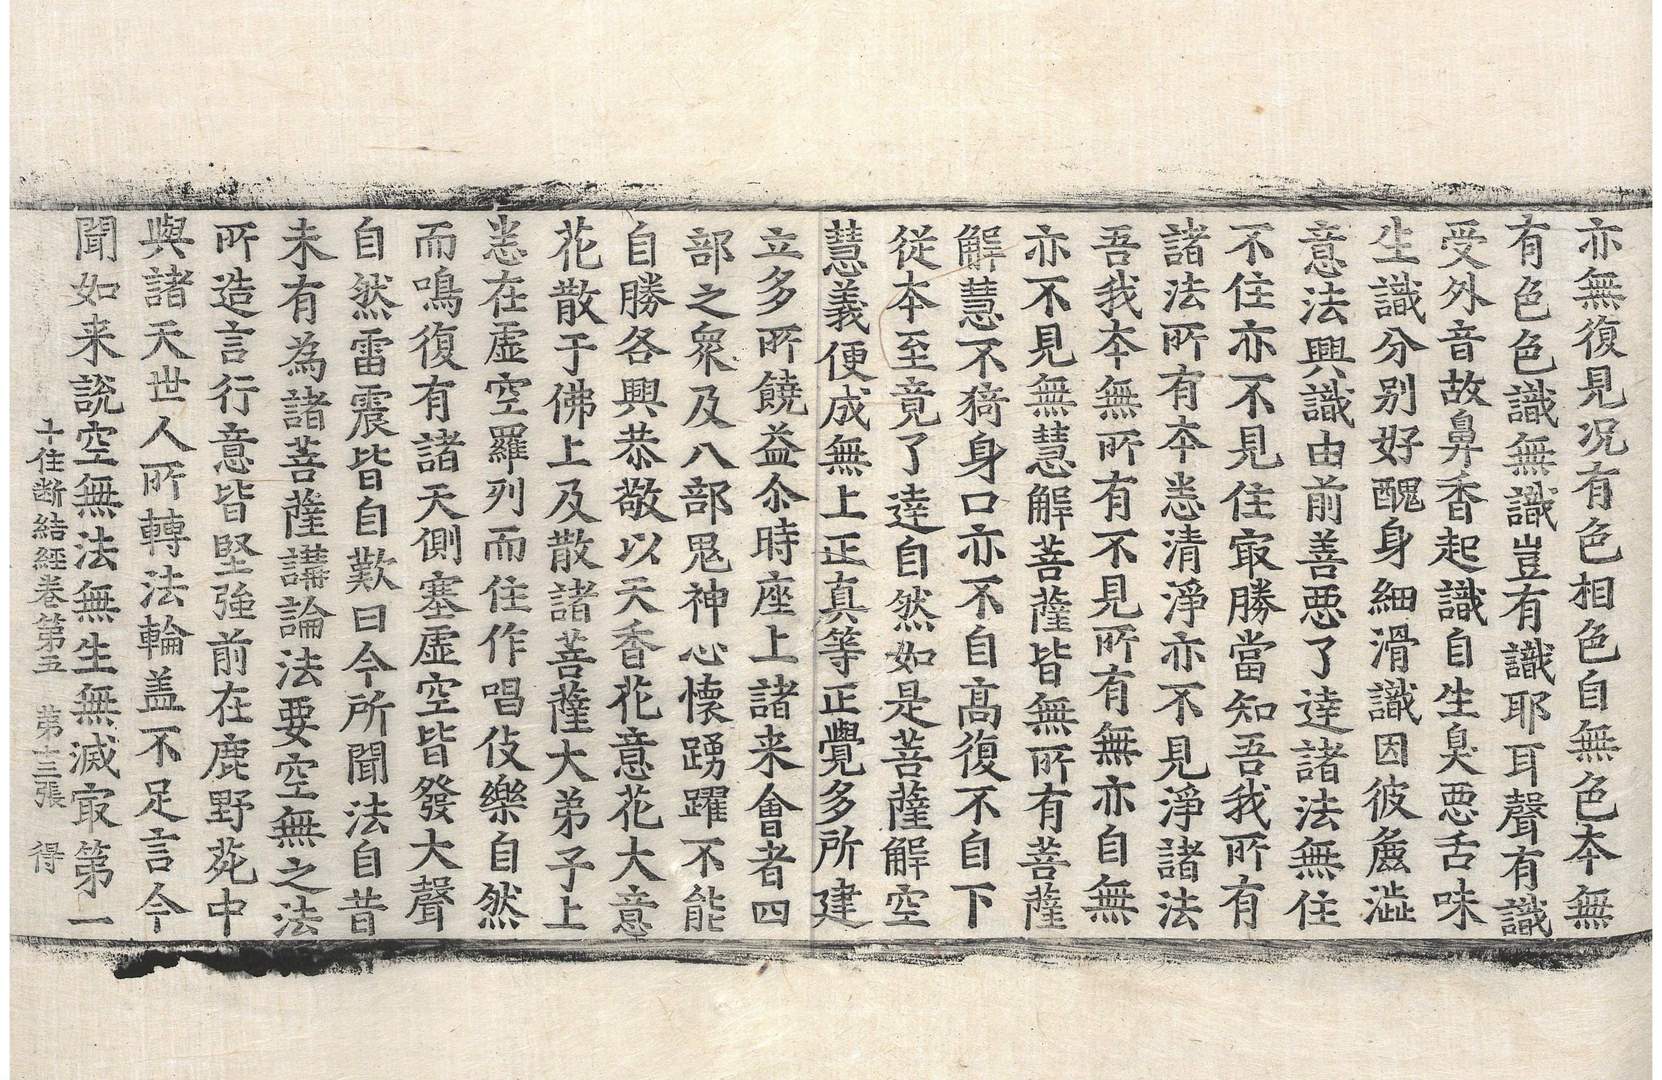 亦無復見况有色相色自無色本無
有色色識無識豈有識耶耳聲有識
受外音故鼻香起識自生臭惡舌味
生識分别好醜身細滑識因彼麁澁
意法興識由前善惡了達諸法無住
不住亦不見住㝡勝當知吾我所有
諸法所有本悉清淨亦不見淨諸法
吾我本無所有不見所有無亦自無
亦不見無慧解菩薩皆無所有菩薩
解慧不猗身口亦不自高復不自下
從本至竟了達自然如是菩薩解空
慧義便成無上正真等正覺多所建
立多所饒益尒時座上諸来會者四
部之衆及八部鬼神心懷踴躍不能
自勝各興恭敬以天香花意花大意
花散于佛上及散諸菩薩大弟子上
悉在虛空羅列而住作唱伎樂自然
而鳴復有諸天側塞虛空皆發大聲
自然雷震皆自歎曰今所聞法自昔
未有為諸菩薩講論法要空無之法
所造言行意皆堅强前在鹿野苑中
與諸天世人所轉法輪盖不足言今
聞如来說空無法無生無滅㝡第一
十住断結經卷第五　第十三張　得